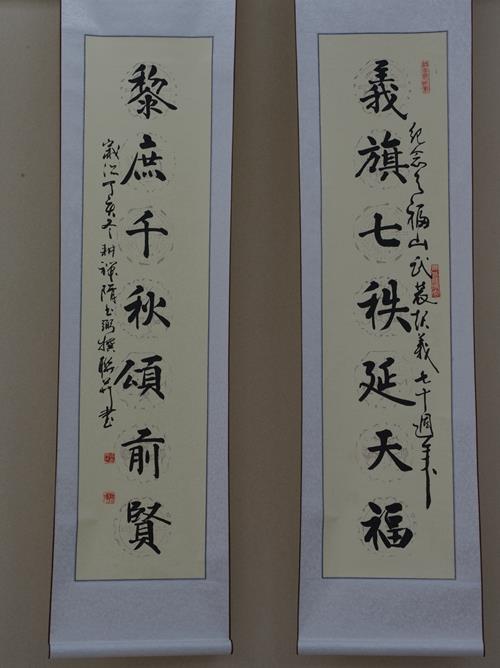 義旗七秩延天福
紀念天福山武裝起義七十週年
黎庶千秋頌前賢
歲次丁亥冬耕禪隋書撰聯并書